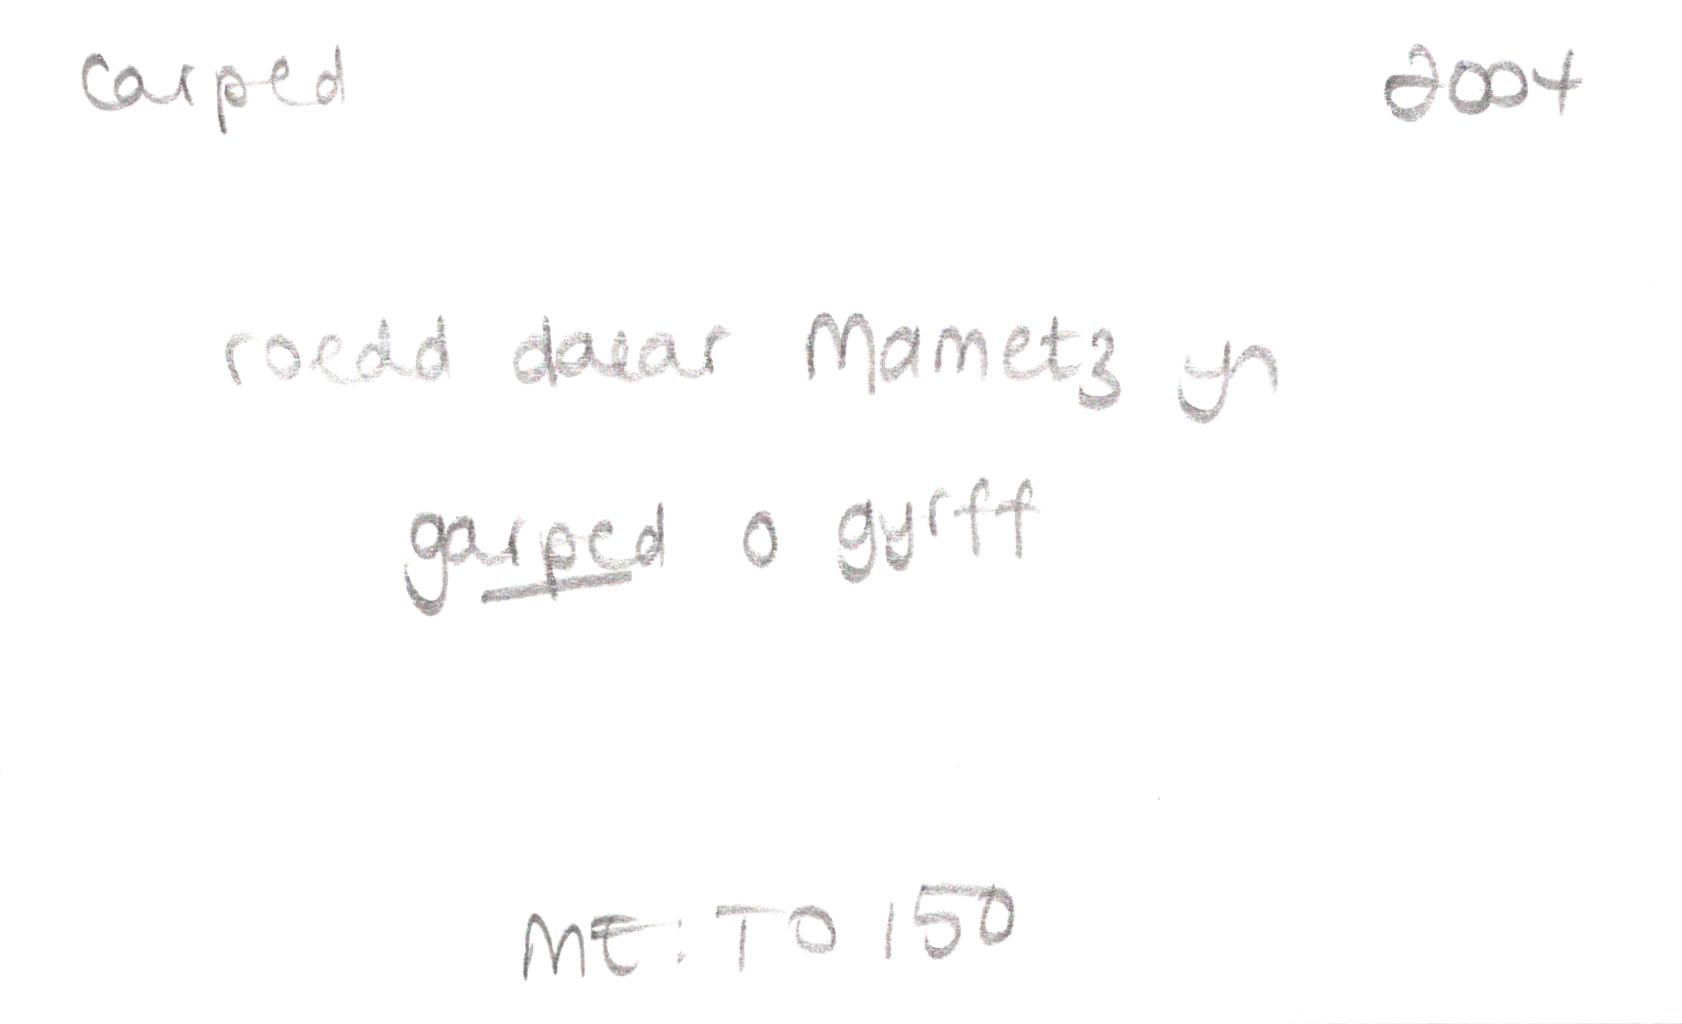 carped 2004
roedd daear Mametz yn
garped o gyrff
ME: TO 150